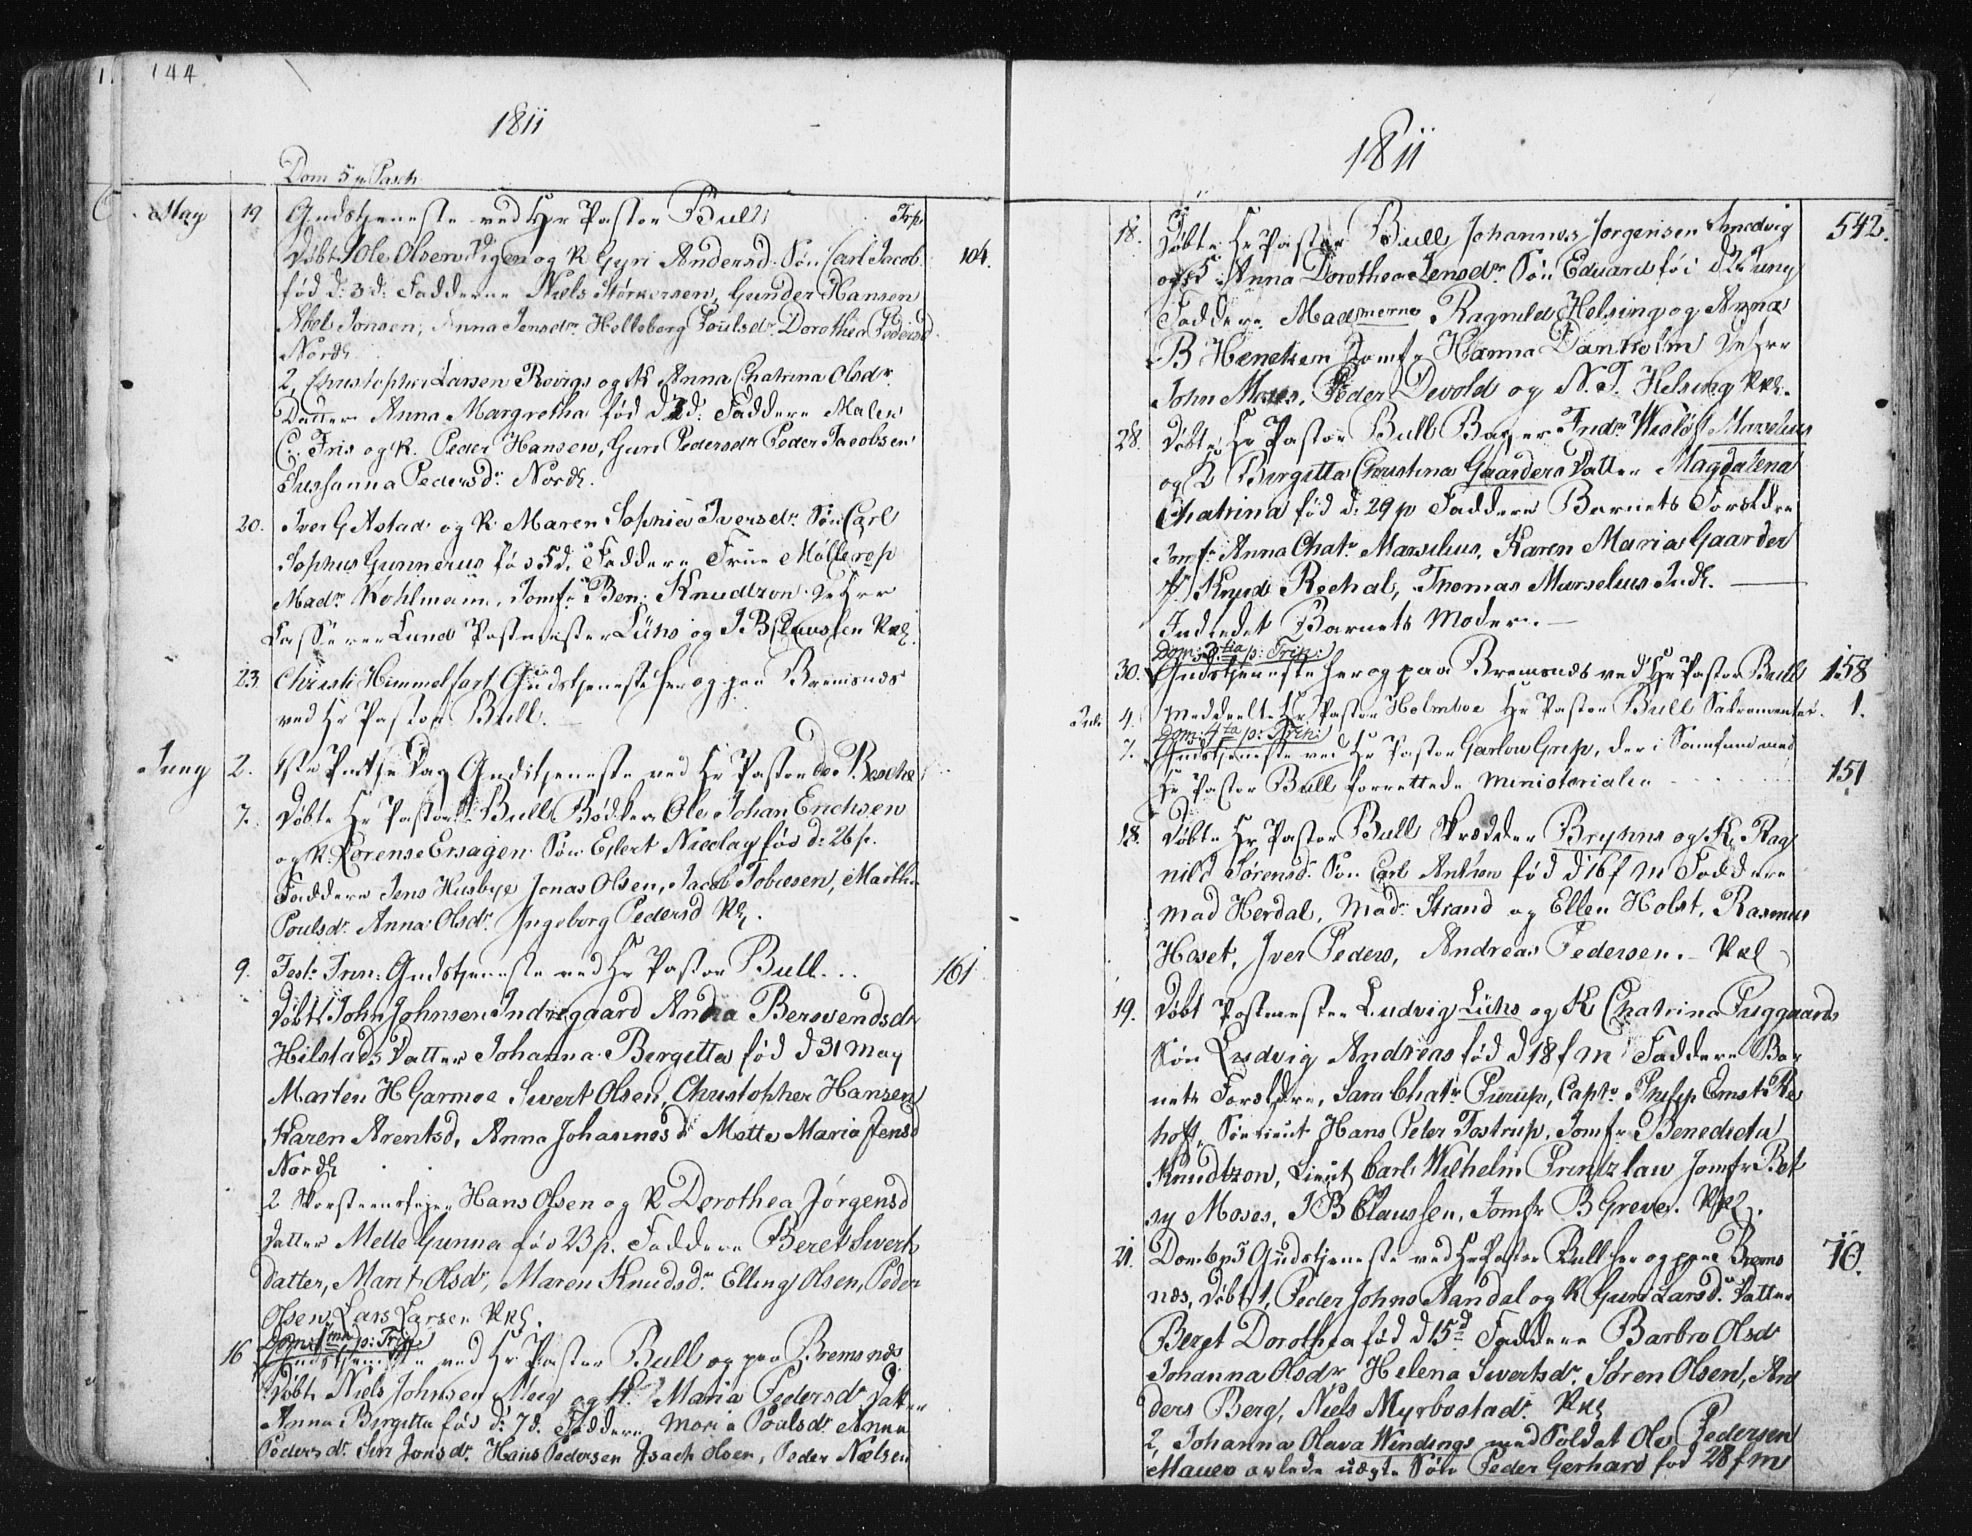 144
1811
Dom 5 p Pasch
May 19 Gudstjeneste ved Hr Pastor Bull
Døbt 1 Ole Olsen og K Gyri Andersd. Søn Carl Jacob 104.
fød d: 3 d: Faddere Niels Størkersen, Gunder Hansen
Abel Jonsen, Anna Jensdr Helleborg Poulsdr Dorothea Pedersd
Nordl.
2, Christopher Larsen Rovigs og K Anna Chatrina Olsdr.
Datter Anna Margretha fød d. Faddere Malen
C. Friis og K. Peder Hansen, Guru Pedersdr Peder Jacobsen
Sussanna Pedersdr. Nordl.
20. Iver G Astad og K Maren Sophia Iversdr. Søn Carl
Sophus Gunnerus fød 5 d. Faddere Frue Möllerop
Madr. Kohlmann, Jomfr. Ben: Knudtzon. De Hrr
Casserer Lund Postmester Lühs og J B Claussen
23 Christi Himmelfart Gudstjeneste her og paa Bremsnæs
ved Hr Pastor Bull.
Juny 2. 1ste Pintse Dag Gudstjeneste ved Hr Pastor de Besche
7. Døbte Hr Pastor Bull Bødker Ole Johan Erichsen
og K. Lorense Ersagen Søn Ejlert Nicolay fød d: 26 p.
Faddere Jens Husbye Jonas Olsen, Jacob Tobiesen, Marthe
Poulsdr. Anna Olsdr. Ingeborg Pedersd
9. Fest: Trin: Gudstjeneste ved Hr Pastor Bull... 161
Døbt 1 John Johnsen Indregaard Andrea Bersvendsdr
Hilstads Datter Johanna Bergitta fød d 31 May
Marten H Garmoe Sivert Olsen, Christopher Hansen
Karen Arentsd, Anna Johannesd Mette Maria Jensd
Nordl
2 Skorsteensfejer Hans Olsen og K Dorothea Jørgensd
Datter Mette Gunna fød 23 p. Faddere Beret Siverts
datter, Marit Olsdr, Maren Knudsdr. Elling Olsen, Peder
Olsen, Lars Larsen
Dom: 1ma p: Trin:
16 Gudstjeneste ved Hr Pastor Bull og paa Bremsnæs
Døbt Niels Johnsen og K. Maria Pedersdr. Datter
Anna Birgitta fød d: 7 d. Faddere Maria Poulsdr Anna
Pedersdr Siri Jonsdr. Hans Pedersen Isach Olsen, Peder Nielsen
1811
18. Døbte Hr Pastor Bull Johannes Jørgensen 542.
og K Anna Dorothea Jensdr. Søn Eduard fød d Juny
Faddere Madmerne Ragnild Helsing og Anna
B Heneken Jomfr Hanna Dankolm De Hrr
John Moses, Peder Devold og N. T. Helsing
28. Døbte Hr Pastor Bull Bager Fredr Marselius
og K Birgitta Christina Gaarders Datter Magdalena
Chatrina fød d: 29 p Faddere Barnets Forældre
Jomfr Anna Chatr. Marselius, Karen Maria Gaarder
Knud Rechal, Thomas Marselius Indl.
Indledet Barnets Moder.
Dom: 3tia p: Trin:
30. Gudstjeneste her og paa Bremsnæs ved Hr Pastor Bull 158
July 4. Meddeelte Hr Pastor Holmboe Hr Pastor Bull Sakramentet. 1.
Dom: 4ta p: Trin:
7. Gudstjeneste ved Hr Pastor Garlow Grip, der i Samfund med
Hr Pastor Bull forrettede Ministorialia 151
18. Døbte Hr Pastor Bull Skrædder Bryhns og K. Rag
nild Sørensd. Søn Carl Anthon fød d 16 f M Faddere
Mad Herdal, Mad: Strand og Ellen Holst, Rasmus
Hoset, Iver Peders, Andreas Pedersen.
19. Døbt Postmester Ludvig Lühs og K Chatrina Fuggaards
Søn Ludvig Andreas fød d 18 f M Faddere Bar
nets Forældre, Sara Chatr Purup, Capt. Philip Ernst Re
hoff, Søe Lieut Hans Peter Tostrup, Jomfr Benedicta
Knudtzon, Lieut Carl Wilhelm Printzlau Jomfr Bet
sy Moses, J B Claussen, Jomfr B Greve.
21. Dom 6 p T Gudstjeneste ved Hr Pastor Bull her og paa Brems 70.
næs, Døbt 1, Peder Johns Aandal og K Guri Larsd. Datter
Beret Dorothea fød d 15d Faddere Barbro Olsdr
Johanna Olsdr Helena Sivertsdr. Søren Olsen, An
ders Berg, Niels Myrbostad.
2, Johanna Olava Windings med Soldat Ole Pedersen
avlede uægte Søn Peder Gerhard fød 28 f M